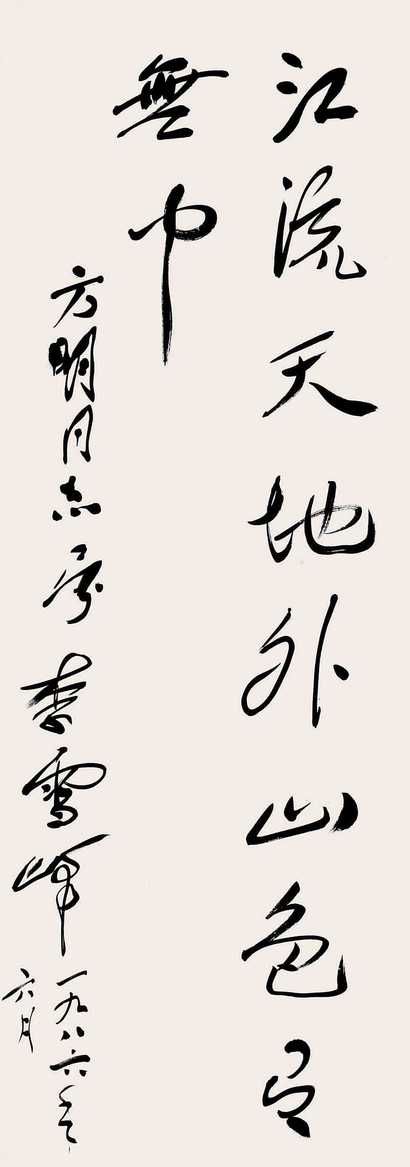 江流天地外山色有
無中
方明同志属 李雪峰 一九八六年
六月